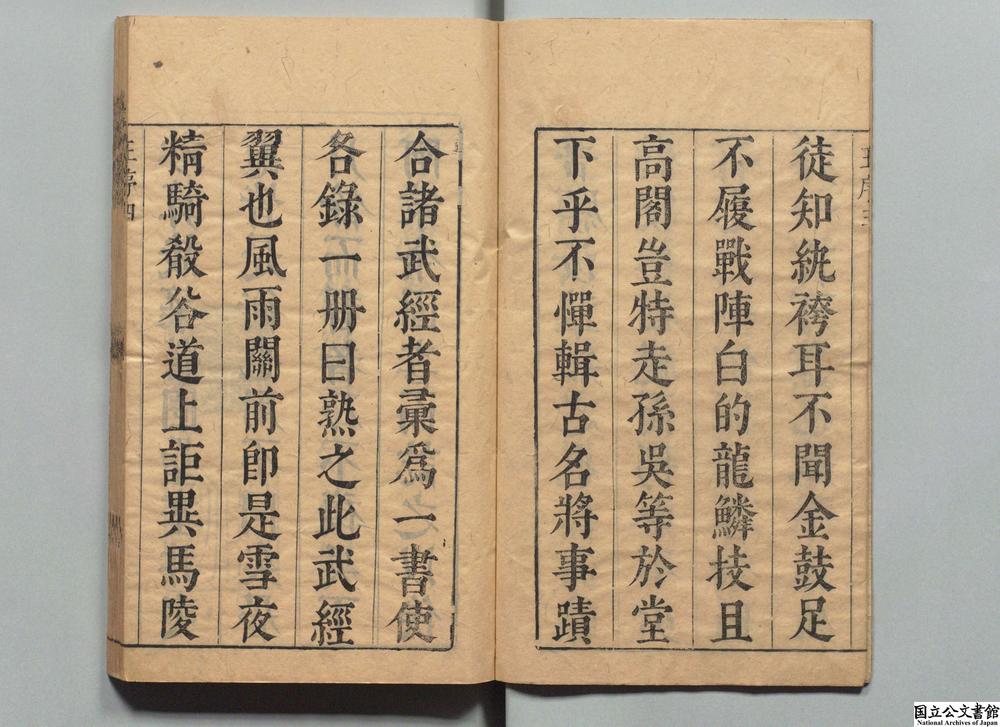 徒知紈袴耳不聞金鼓足
不履戰陣白的龍鱗技且
高閣豈特走孫吳等於堂
下乎不憚輯古名將事蹟
合諸武經者彙爲一書使
各錄一册曰熟之此武經
翼也風雨關前即是雪夜
精騎殽谷道上詎異馬陵
王序四
国立公文書館
National Archives of Japan